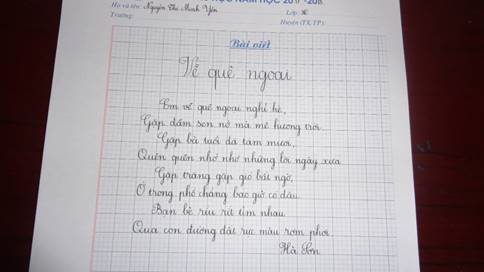 HỌC NĂM HỌC
Họ và tên: Nguyễn Thị Minh Yến Lớp:
Trường: Huyện (TX,TP):
Bài viết
Về quê ngoại
Em về quê ngoại nghỉ hè,
Gặp đầm sen nở mà mê hương trời.
Gặp bà tuổi đã tám mươi,
Quên quên nhớ nhớ những lời ngày xưa.
Gặp trăng gặp gió bất ngờ,
Ở trong phố chẳng bao giờ có đâu.
Bạn bè ríu rít tìm nhau
Qua con đường đất rực màu rơm phơi.
Hà Sơn